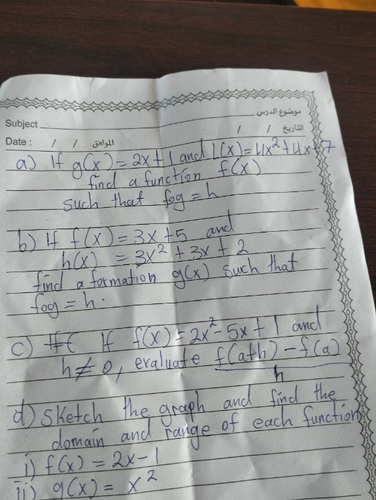 موضوع الدرس
Subject
التاريخ / /
Date : / / الموافق / /
a) If g(x) = 2x+1 and h(x) = 4x²+4x+7
find a function f(x)
such that fog = h
b) If f(x) = 3x+5 and
h(x) = 3x² + 3x + 2
find a formation g(x) such that
fog = h.
c) If f(x) = 2x²-5x+1 and
h≠0, evaluate f(a+h) - f(a)
h
d) Sketch the graph and find the
domain and range of each function
i) f(x) = 2x-1
ii) g(x) = x²